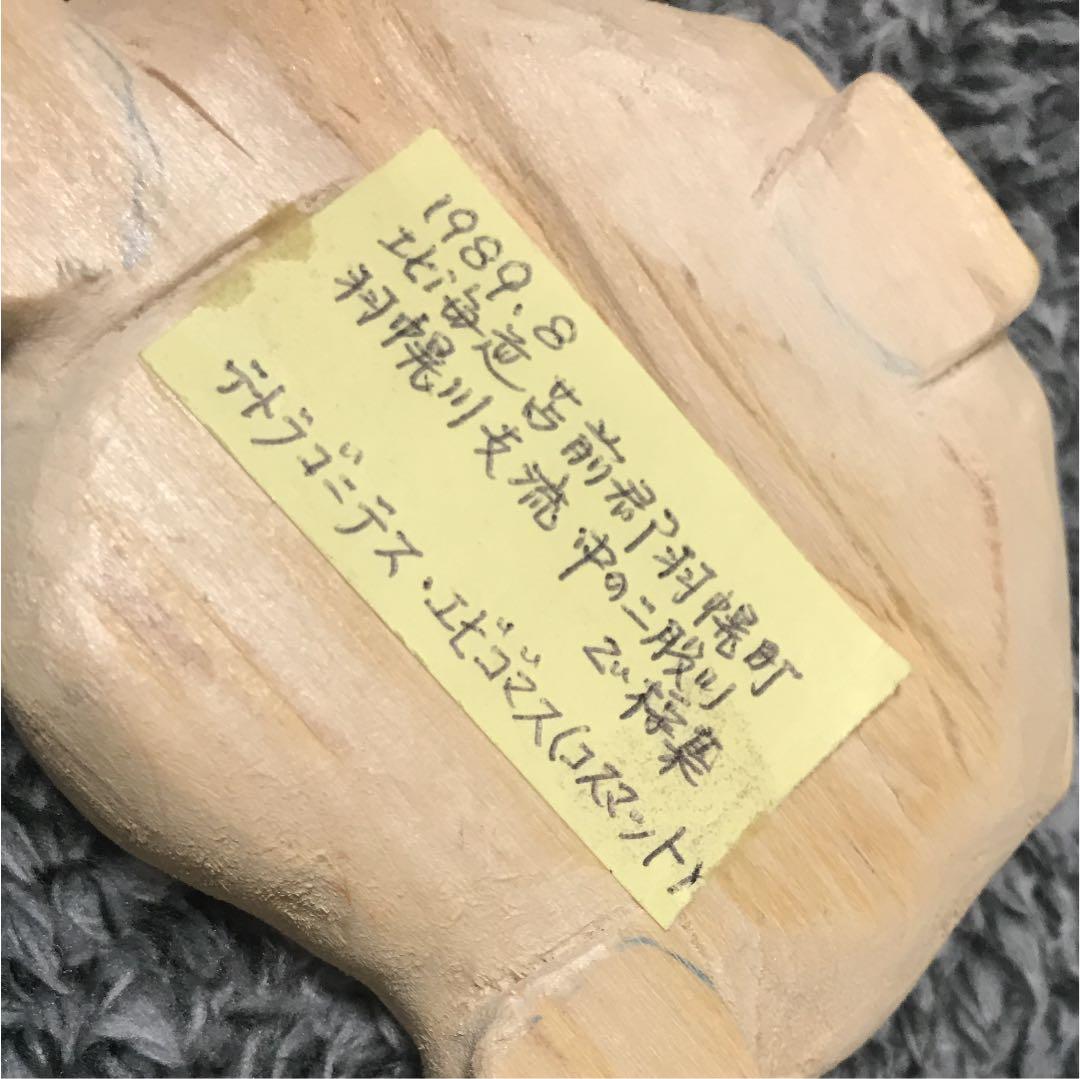 1989.8
北海道 苫前郡羽幌町
羽幌川支流 中の二股川
で採集
テトラゴニテス・エピゴマス(コスマット)